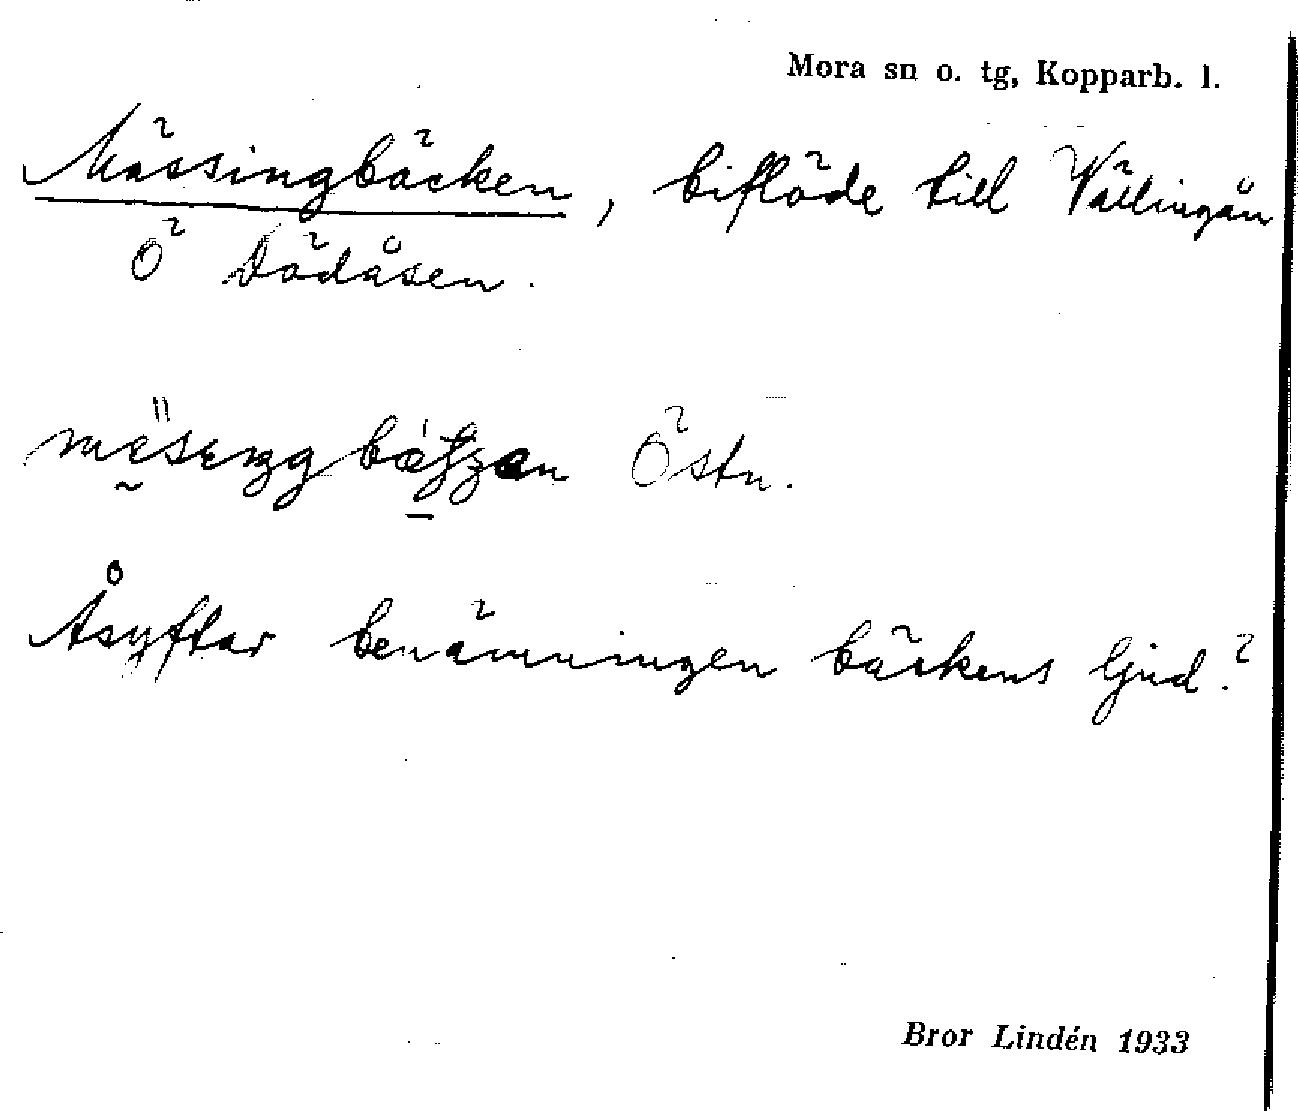 Mora sn o. tg, Kopparb. l.
Mässingbäcken, biflöde till Vällingån
Ö Dödåsen.
Östn.
Åsyftar benämningen bäckens ljud?
Bror Lindén 1933